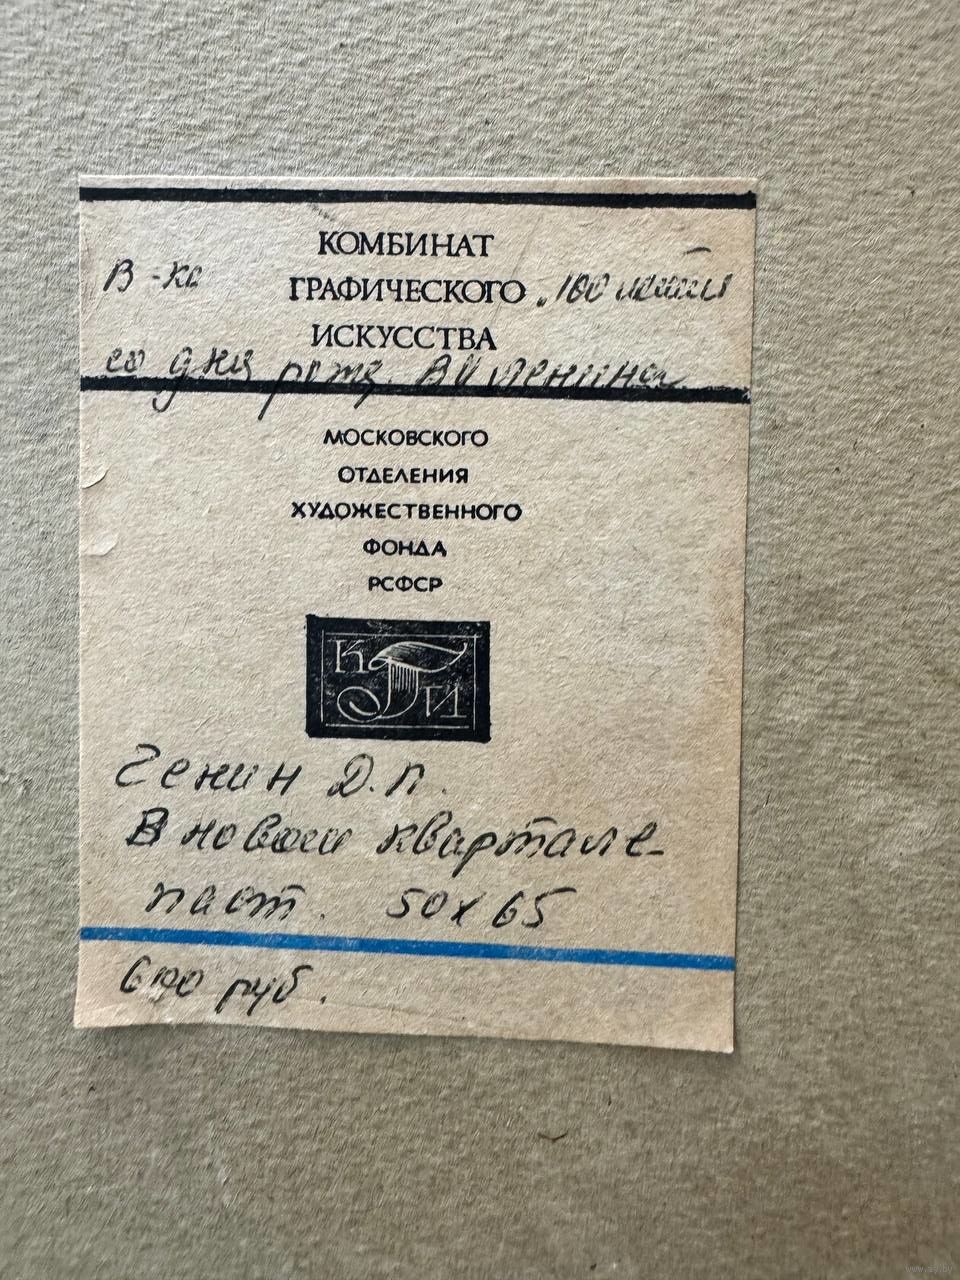 КОМБИНАТ
В-ка ГРАФИЧЕСКОГО "100 летия
ИСКУССТВА
со дня рожд. ВИ Ленина
МОСКОВСКОГО
ОТДЕЛЕНИЯ
ХУДОЖЕСТВЕННОГО
ФОНДА
РСФСР
КГИ
Генин Д.П.
В новом квартале
паст. 50х65
руб.